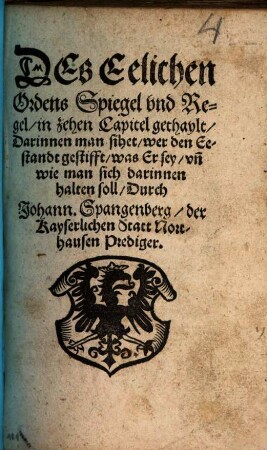 4
DEs Eelichen
Ordens Spiegel vnd Re-
gel/ in zehen Capitel gethaylt/
Darinnen man sihet/ wer den Ee-
standt gestifft/ was Er sey/ vñ
wie man sich darinnen
halten soll/ Durch
Johann. Spangenberg/ der
Kayserlichen Statt Nort-
hausen Prediger.